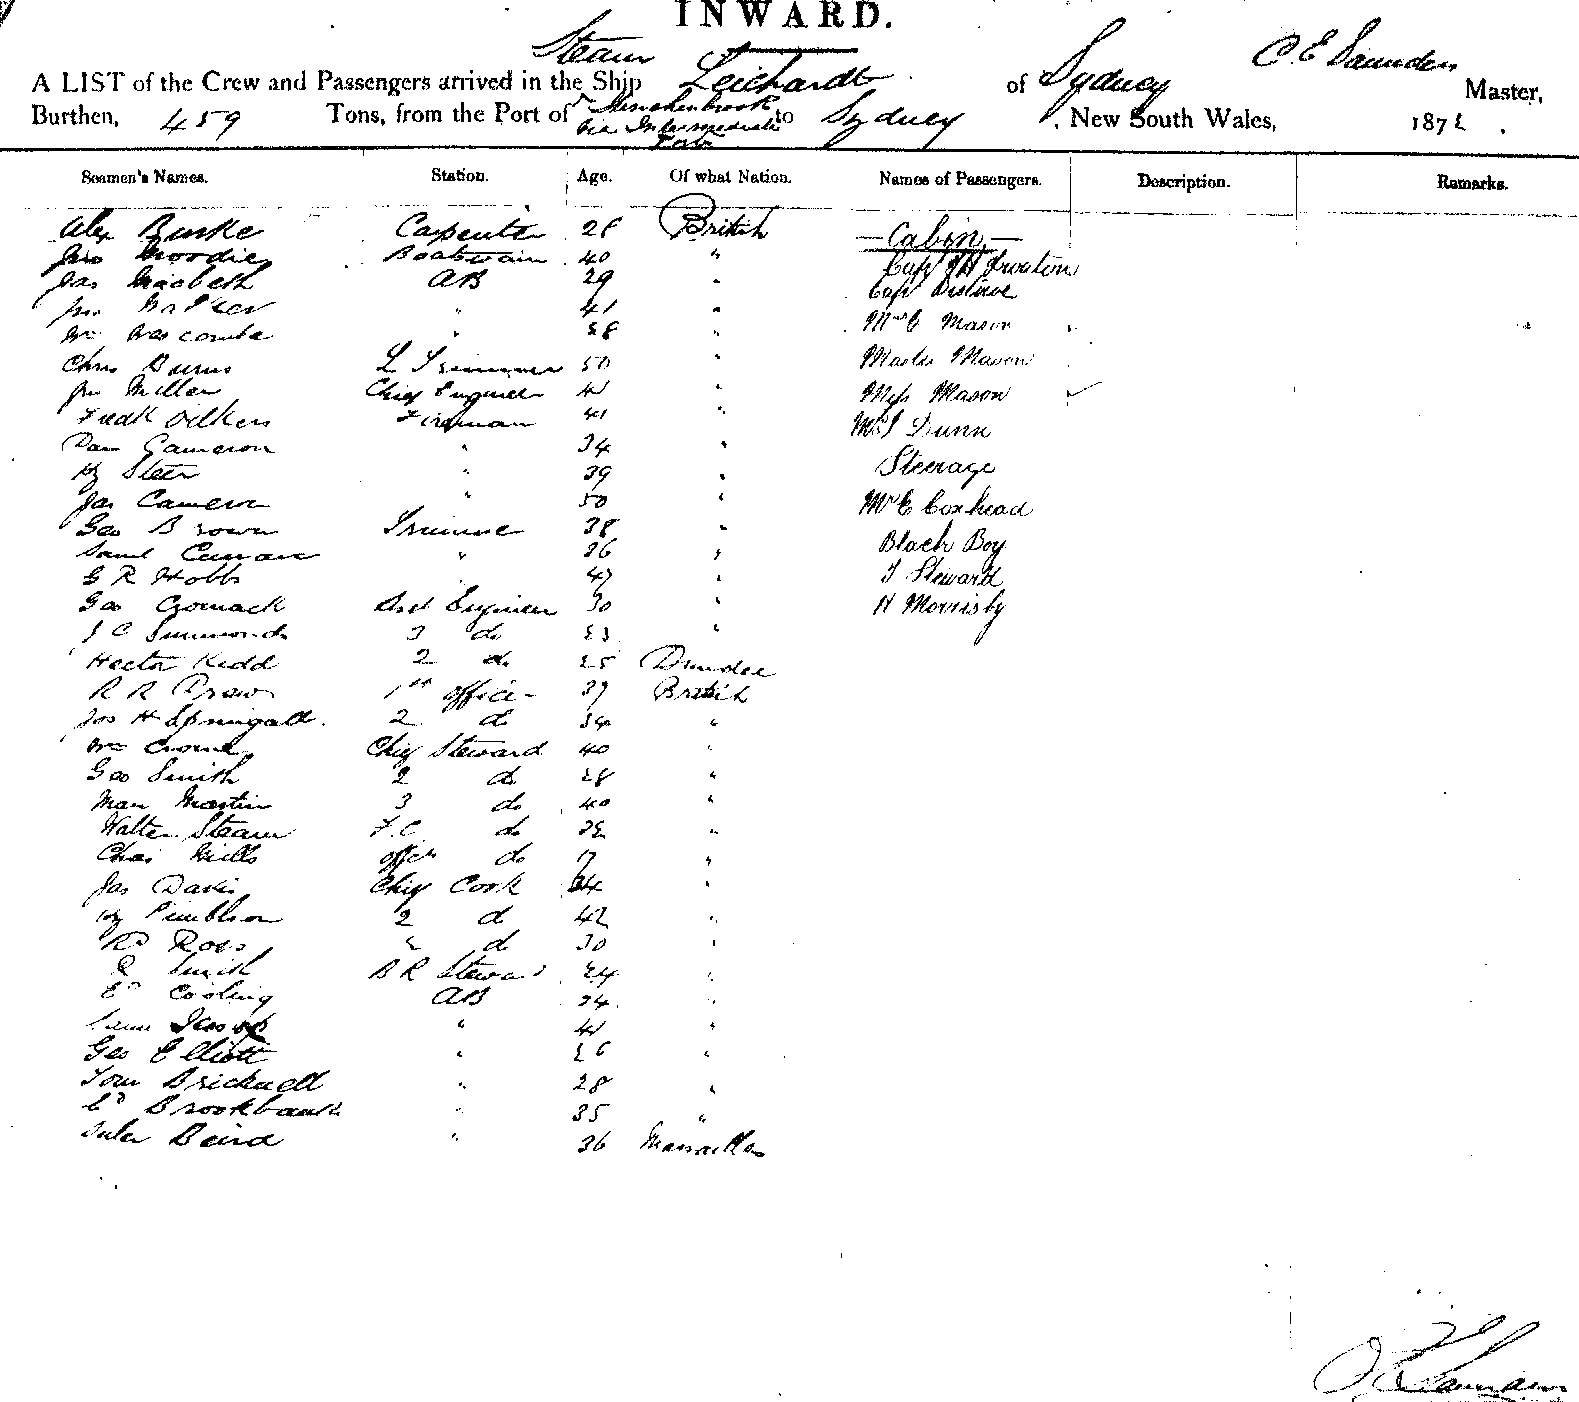 INWARD.
Steam
A LIST of the Crew and Passengers arrived in the Ship Leichardt of Sydney C. E. Saunders Master,
Burthen, 459 Tons, from the Port of via Intermediate Ports to Sydney, New South Wales, 187
Seamen's Names. Station. Age. Of what Nation. Names of Passengers. Description. Remarks.
Alex Burke Carpenter 28 British Cabin
Moodie Boatswain 40 " Capt
Jas Macbeth AB 29 " Capt
Jno Walker " 41 " Mr C Mason
Wm " 28 " Master Mason
Chris Burns L Trimmer 50 " Miss Mason
Jno Millar Chief Engineer 41 " Mrs Dunn
Fredk Fireman 41 " Steerage
Dan Cameron " 34 " Mr C Coxhead
Hy Steer " 39 " Black Boy
Jas Cameron " 50 " J Steward
Geo Brown Trimmer 38 " H Morrisby
Saml Curran " 36 "
G R Hobbs 47 "
Geo Cromack Asst Engineer 30 "
J C Simmonds 3 do 23 "
Hector Kidd 2 do 25 Dundee
R R Drew 1st officer 39 British
Jos H Springall 2 do 34 "
Wm Chief Steward 40 "
Geo Smith 2 do 28 "
Martin 3 do 40 "
Walter Stearn F.C do "
Chas Mills do 17 "
Jas Davis Chief Cook 34 "
Hy 2 do 42 "
Rd Ross " do 30 "
R Smith B R Steward 24 "
Ed Cooling AB 34 "
" 41 "
Geo Elliott " 26 "
Tom Bricknell " 28 "
Ed Brookbank " 35 "
Baird " 36
C E Saunders